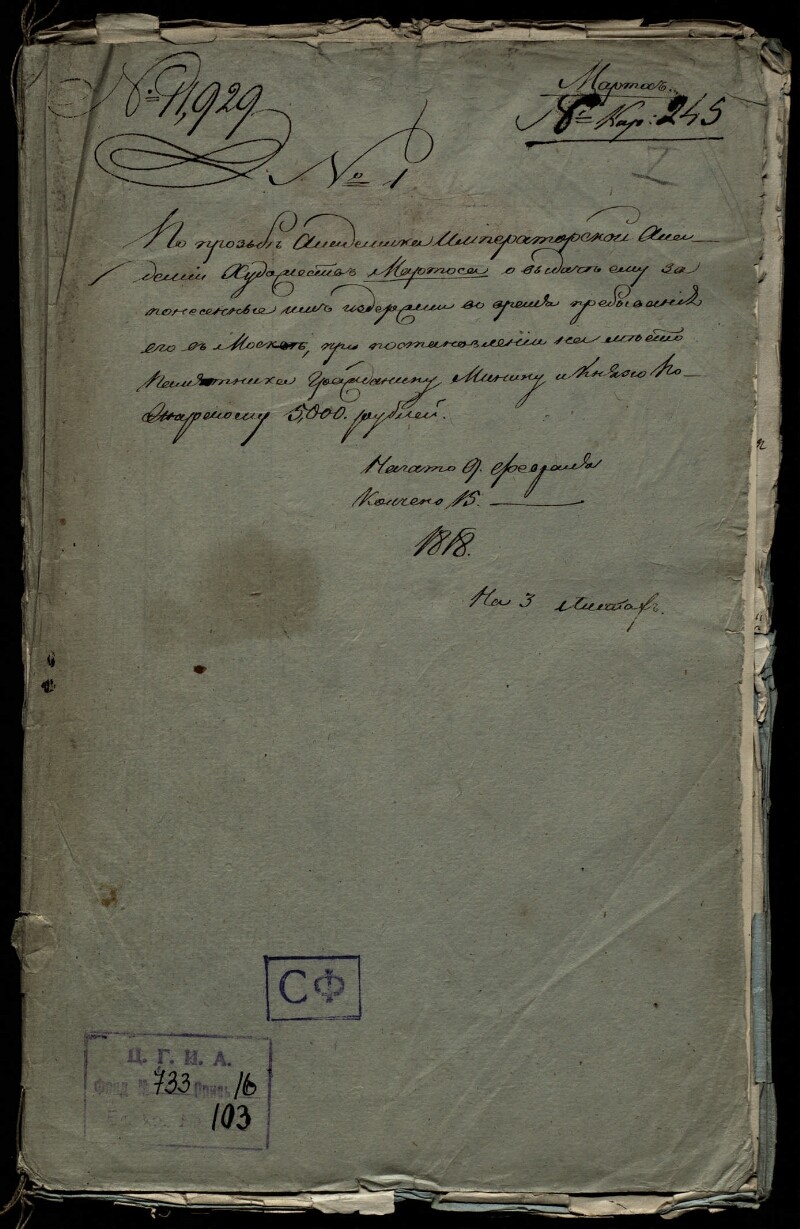 № 11,929
Мартосъ.
№ Кар: 245
I
№ 1
По прозьбѣ Академика Императорской Ака-
деміи Художествъ Мартоса о выдачѣ ему за
понесенные имъ издержки во время пребыванія
его въ Москвѣ, при постановленіи на мѣсто
Памятника Гражданину Минину и Князю По-
жарскому 5,000. рублей.
Начато 9. февраля
Кончено 15.
1818.
На 3 листахъ.
СФ
Ц. Г. И. А.
Фонд № 733 Опись 16
103